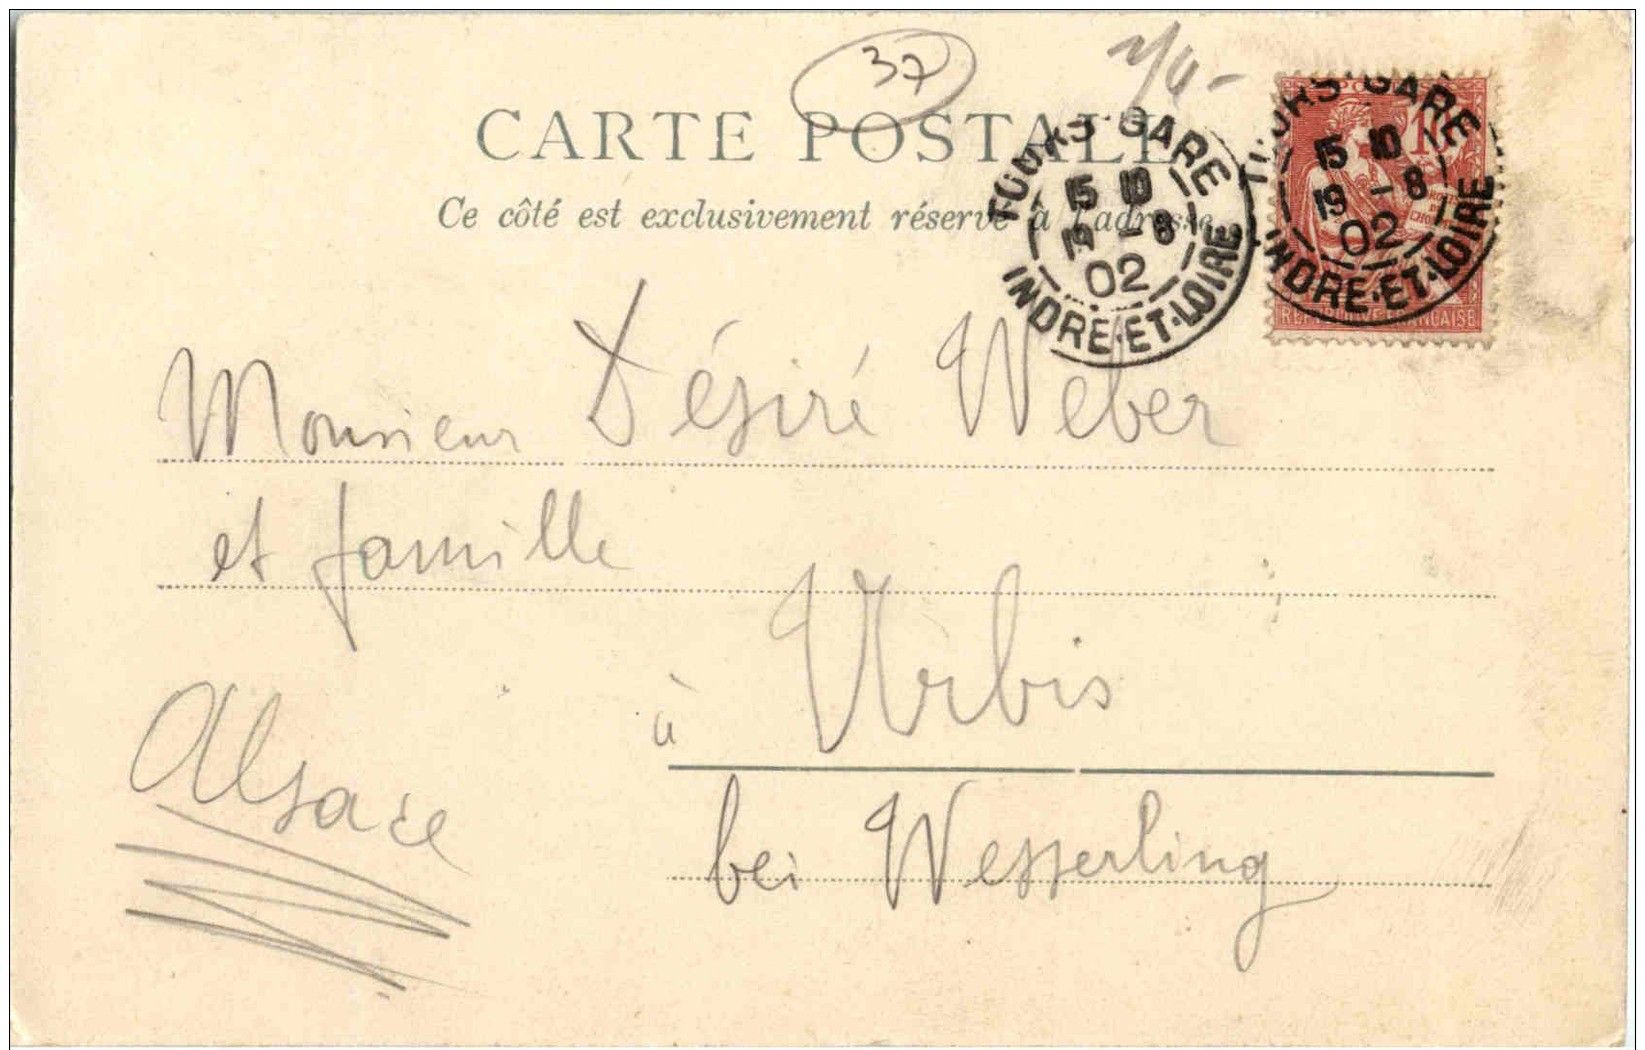 37
CARTE POSTALE
Ce côté est exclusivement réservé à l'adresse
TOURS·GARE
15 10
19 -8
02
INDRE·ET·LOIRE
TOURS·GARE
15 10
19 -8
02
INDRE·ET·LOIRE
REPUBLIQUE FRANÇAISE
Monsieur Désiré Weber
et famille
à Urbis
bei Wesserling
Alsace